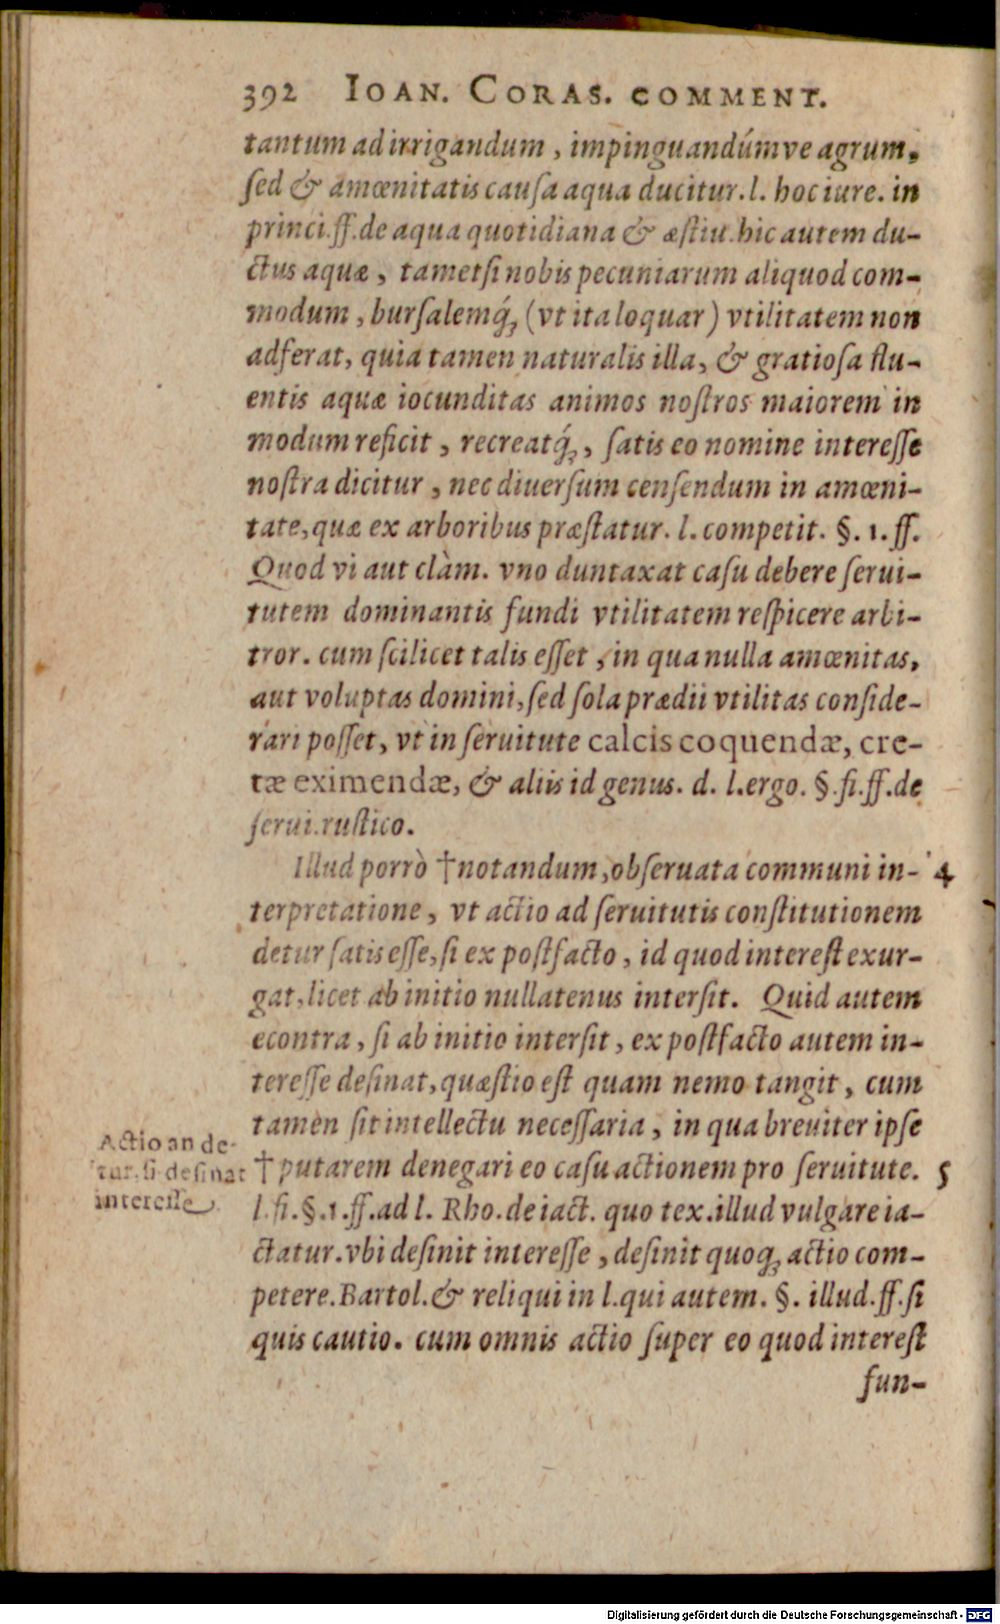 392 IOAN. CORAS. COMMENT.
tantum ad irrigandum, impinguandúmve agrum,
ſed & amœnitatis cauſa aqua ducitur. l. hoc iure. in
princi. ff. de aqua quotidiana & æſtiu. hic autem du-
ctus aquæ, tametſi nobis pecuniarum aliquod com-
modum, burſalemq́ꝫ (vt ita loquar) vtilitatem non
adferat, quia tamen naturalis illa, & gratioſa flu-
entis aquæ iocunditas animos noſtros maiorem in
modum reficit, recreatq́ꝫ, ſatis eo nomine intereſſe
noſtra dicitur, nec diuerſum cenſendum in amœni-
tate, quæ ex arboribus præſtatur. l. competit. §. 1. ff.
Quod vi aut clàm. vno duntaxat caſu debere ſerui-
tutem dominantis fundi vtilitatem reſpicere arbi-
tror. cum ſcilicet talis eſſet, in qua nulla amœnitas,
aut voluptas domini, ſed ſola prædii vtilitas conſide-
rari poſſet, vt in ſeruitute calcis coquendæ, cre-
tæ eximendæ, & aliis id genus. d. l. ergo. §. fi. ff. de
ſerui. ruſtico.
Illud porrò †notandum, obſeruata communi in- 4
terpretatione, vt actio ad ſeruitutis conſtitutionem
detur ſatis eſſe, ſi ex poſtfacto, id quod intereſt exur-
gat, licet ab initio nullatenus interſit. Quid autem
econtra, ſi ab initio interſit, ex poſtfacto autem in-
tereſſe deſinat, quæſtio eſt quam nemo tangit, cum
tamen ſit intellectu neceſſaria, in qua breuiter ipſe
†putarem denegari eo caſu actionem pro ſeruitute. 5
l. fi. §. 1. ff. ad l. Rho. de iact. quo tex. illud vulgare ia-
ctatur. vbi deſinit intereſſe, deſinit quoqꝫ actio com-
petere. Bartol. & reliqui in l. qui autem. §. illud. ff. ſi
quis cautio. cum omnis actio ſuper eo quod intereſt
fun-
Actio an de-
tur, ſi deſinat
intereſſe.
Digitalisierung gefördert durch die Deutsche Forschungsgemeinschaft - DFG